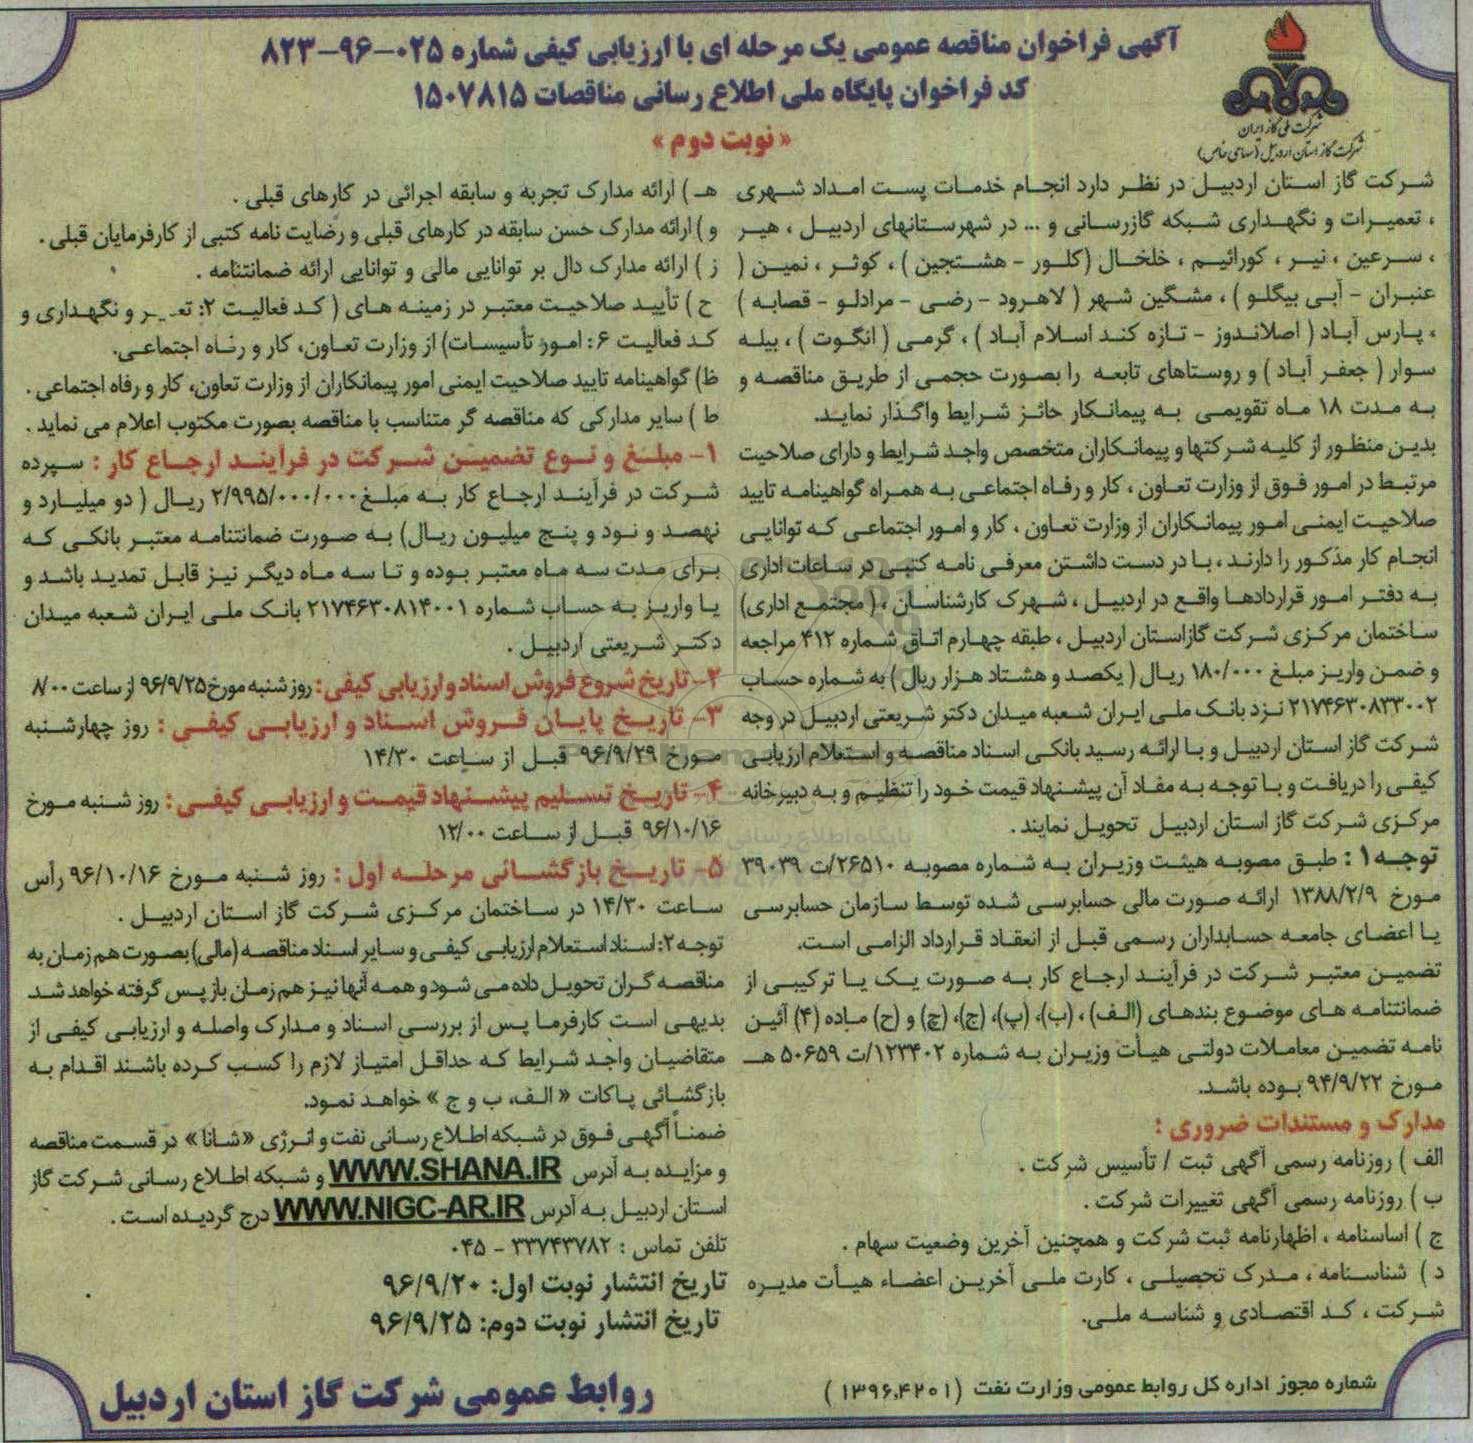 آگهی فراخوان مناقصه عمومی یک مرحله ای با ارزیابی کیفی شماره ۰۲۵-۹۶-۸۲۳
کد فراخوان پایگاه ملی اطلاع رسانی مناقصات ۱۵۰۷۸۱۵
« نوبت دوم »
شرکت ملی گاز ایران
شرکت گاز استان اردبیل (سهامی خاص)
شرکت گاز استان اردبیل در نظر دارد انجام خدمات پست امداد شهری
، تعمیرات و نگهداری شبکه گازرسانی و ... در شهرستانهای اردبیل ، هیر
، سرعین ، نیر ، کورائیم ، خلخال (کلور - هشتجین ) ، کوثر ، نمین (
عنبران - آبی بیگلو ) ، مشگین شهر ( لاهرود - رضی - مرادلو - قصابه )
، پارس آباد ( اصلاندوز - تازه کند اسلام آباد ) ، گرمی ( انگوت ) ، بیله
سوار ( جعفر آباد ) و روستاهای تابعه را بصورت حجمی از طریق مناقصه و
به مدت ۱۸ ماه تقویمی به پیمانکار حائز شرایط واگذار نماید.
بدین منظور از کلیه شرکتها و پیمانکاران متخصص واجد شرایط و دارای صلاحیت
مرتبط در امور فوق از وزارت تعاون ، کار و رفاه اجتماعی به همراه گواهینامه تایید
صلاحیت ایمنی امور پیمانکاران از وزارت تعاون ، کار و امور اجتماعی که توانایی
انجام کار مذکور را دارند ، با در دست داشتن معرفی نامه کتبی در ساعات اداری
به دفتر امور قراردادها واقع در اردبیل ، شهرک کارشناسان ، ( مجتمع اداری)
ساختمان مرکزی شرکت گازاستان اردبیل ، طبقه چهارم اتاق شماره ۴۱۲ مراجعه
و ضمن واریز مبلغ ۱۸۰/۰۰۰ ریال ( یکصد و هشتاد هزار ریال ) به شماره حساب
۲۱۷۴۶۳۰۸۳۳۰۰۲ نزد بانک ملی ایران شعبه میدان دکتر شریعتی اردبیل در وجه
شرکت گاز استان اردبیل و با ارائه رسید بانکی اسناد مناقصه و استعلام ارزیابی
کیفی را دریافت و با توجه به مفاد آن پیشنهاد قیمت خود را تنظیم و به دبیرخانه
مرکزی شرکت گاز استان اردبیل تحویل نمایند .
توجه ۱ : طبق مصوبه هیئت وزیران به شماره مصوبه ۲۶۵۱۰/ت ۳۹۰۳۹
مورخ ۱۳۸۸/۲/۹ ارائه صورت مالی حسابرسی شده توسط سازمان حسابرسی
یا اعضای جامعه حسابداران رسمی قبل از انعقاد قرارداد الزامی است.
تضمین معتبر شرکت در فرآیند ارجاع کار به صورت یک یا ترکیبی از
ضمانتنامه های موضوع بندهای (الف) ، (ب)، (پ)، (ج)، (چ) و (ح) ماده (۴) آئین
نامه تضمین معاملات دولتی هیأت وزیران به شماره ۱۲۳۴۰۲/ت ۵۰۶۵۹ هـ
مورخ ۹۴/۹/۲۲ بوده باشد.
مدارک و مستندات ضروری :
الف ) روزنامه رسمی آگهی ثبت / تأسیس شرکت .
ب ) روزنامه رسمی آگهی تغییرات شرکت .
ج ) اساسنامه ، اظهارنامه ثبت شرکت و همچنین آخرین وضعیت سهام .
د ) شناسنامه ، مدرک تحصیلی ، کارت ملی آخرین اعضاء هیأت مدیره
شرکت ، کد اقتصادی و شناسه ملی.
هـ ) ارائه مدارک تجربه و سابقه اجرائی در کارهای قبلی .
و ) ارائه مدارک حسن سابقه در کارهای قبلی و رضایت نامه کتبی از کارفرمایان قبلی .
ز ) ارائه مدارک دال بر توانایی مالی و توانایی ارائه ضمانتنامه .
ح ) تأیید صلاحیت معتبر در زمینه های ( کد فعالیت ۲: و نگهداری و
کد فعالیت ۶ : امور تأسیسات) از وزارت تعاون، کار و رفاه اجتماعی.
ظ) گواهینامه تایید صلاحیت ایمنی امور پیمانکاران از وزارت تعاون، کار و رفاه اجتماعی .
ط ) سایر مدارکی که مناقصه گر متناسب با مناقصه بصورت مکتوب اعلام می نماید .
۱- مبلغ و نوع تضمین شرکت در فرآیند ارجاع کار : سپرده
شرکت در فرآیند ارجاع کار به مبلغ ۲/۹۹۵/۰۰۰/۰۰۰ ریال ( دو میلیارد و
نهصد و نود و پنج میلیون ریال) به صورت ضمانتنامه معتبر بانکی که
برای مدت سه ماه معتبر بوده و تا سه ماه دیگر نیز قابل تمدید باشد و
یا واریز به حساب شماره ۲۱۷۴۶۳۰۸۱۴۰۰۱ بانک ملی ایران شعبه میدان
دکتر شریعتی اردبیل .
۲- تاریخ شروع فروش اسناد و ارزیابی کیفی : روز شنبه مورخ ۹۶/۹/۲۵ از ساعت ۸/۰۰
۳- تاریخ پایان فروش اسناد و ارزیابی کیفی : روز چهارشنبه
مورخ ۹۶/۹/۲۹ قبل از ساعت ۱۴/۳۰
۴- تاریخ تسلیم پیشنهاد قیمت و ارزیابی کیفی : روز شنبه مورخ
۹۶/۱۰/۱۶ قبل از ساعت ۱۲/۰۰
۵- تاریخ بازگشائی مرحله اول : روز شنبه مورخ ۹۶/۱۰/۱۶ رأس
ساعت ۱۴/۳۰ در ساختمان مرکزی شرکت گاز استان اردبیل .
توجه ۲: اسناد استعلام ارزیابی کیفی و سایر اسناد مناقصه (مالی) بصورت هم زمان به
مناقصه گران تحویل داده می شود و همه آنها نیز هم زمان باز پس گرفته خواهد شد
بدیهی است کارفرما پس از بررسی اسناد و مدارک واصله و ارزیابی کیفی از
متقاضیان واجد شرایط که حداقل امتیاز لازم را کسب کرده باشند اقدام به
بازگشائی پاکات « الف، ب و ج » خواهد نمود.
ضمناً آگهی فوق در شبکه اطلاع رسانی نفت و انرژی «شانا» در قسمت مناقصه
و مزایده به آدرس WWW.SHANA.IR و شبکه اطلاع رسانی شرکت گاز
استان اردبیل به آدرس WWW.NIGC-AR.IR درج گردیده است .
تلفن تماس : ۳۳۷۴۳۷۸۲ - ۰۴۵
تاریخ انتشار نوبت اول: ۹۶/۹/۲۰
تاریخ انتشار نوبت دوم: ۹۶/۹/۲۵
شماره مجوز اداره کل روابط عمومی وزارت نفت (۱۳۹۶,۴۲۰۱)
روابط عمومی شرکت گاز استان اردبیل